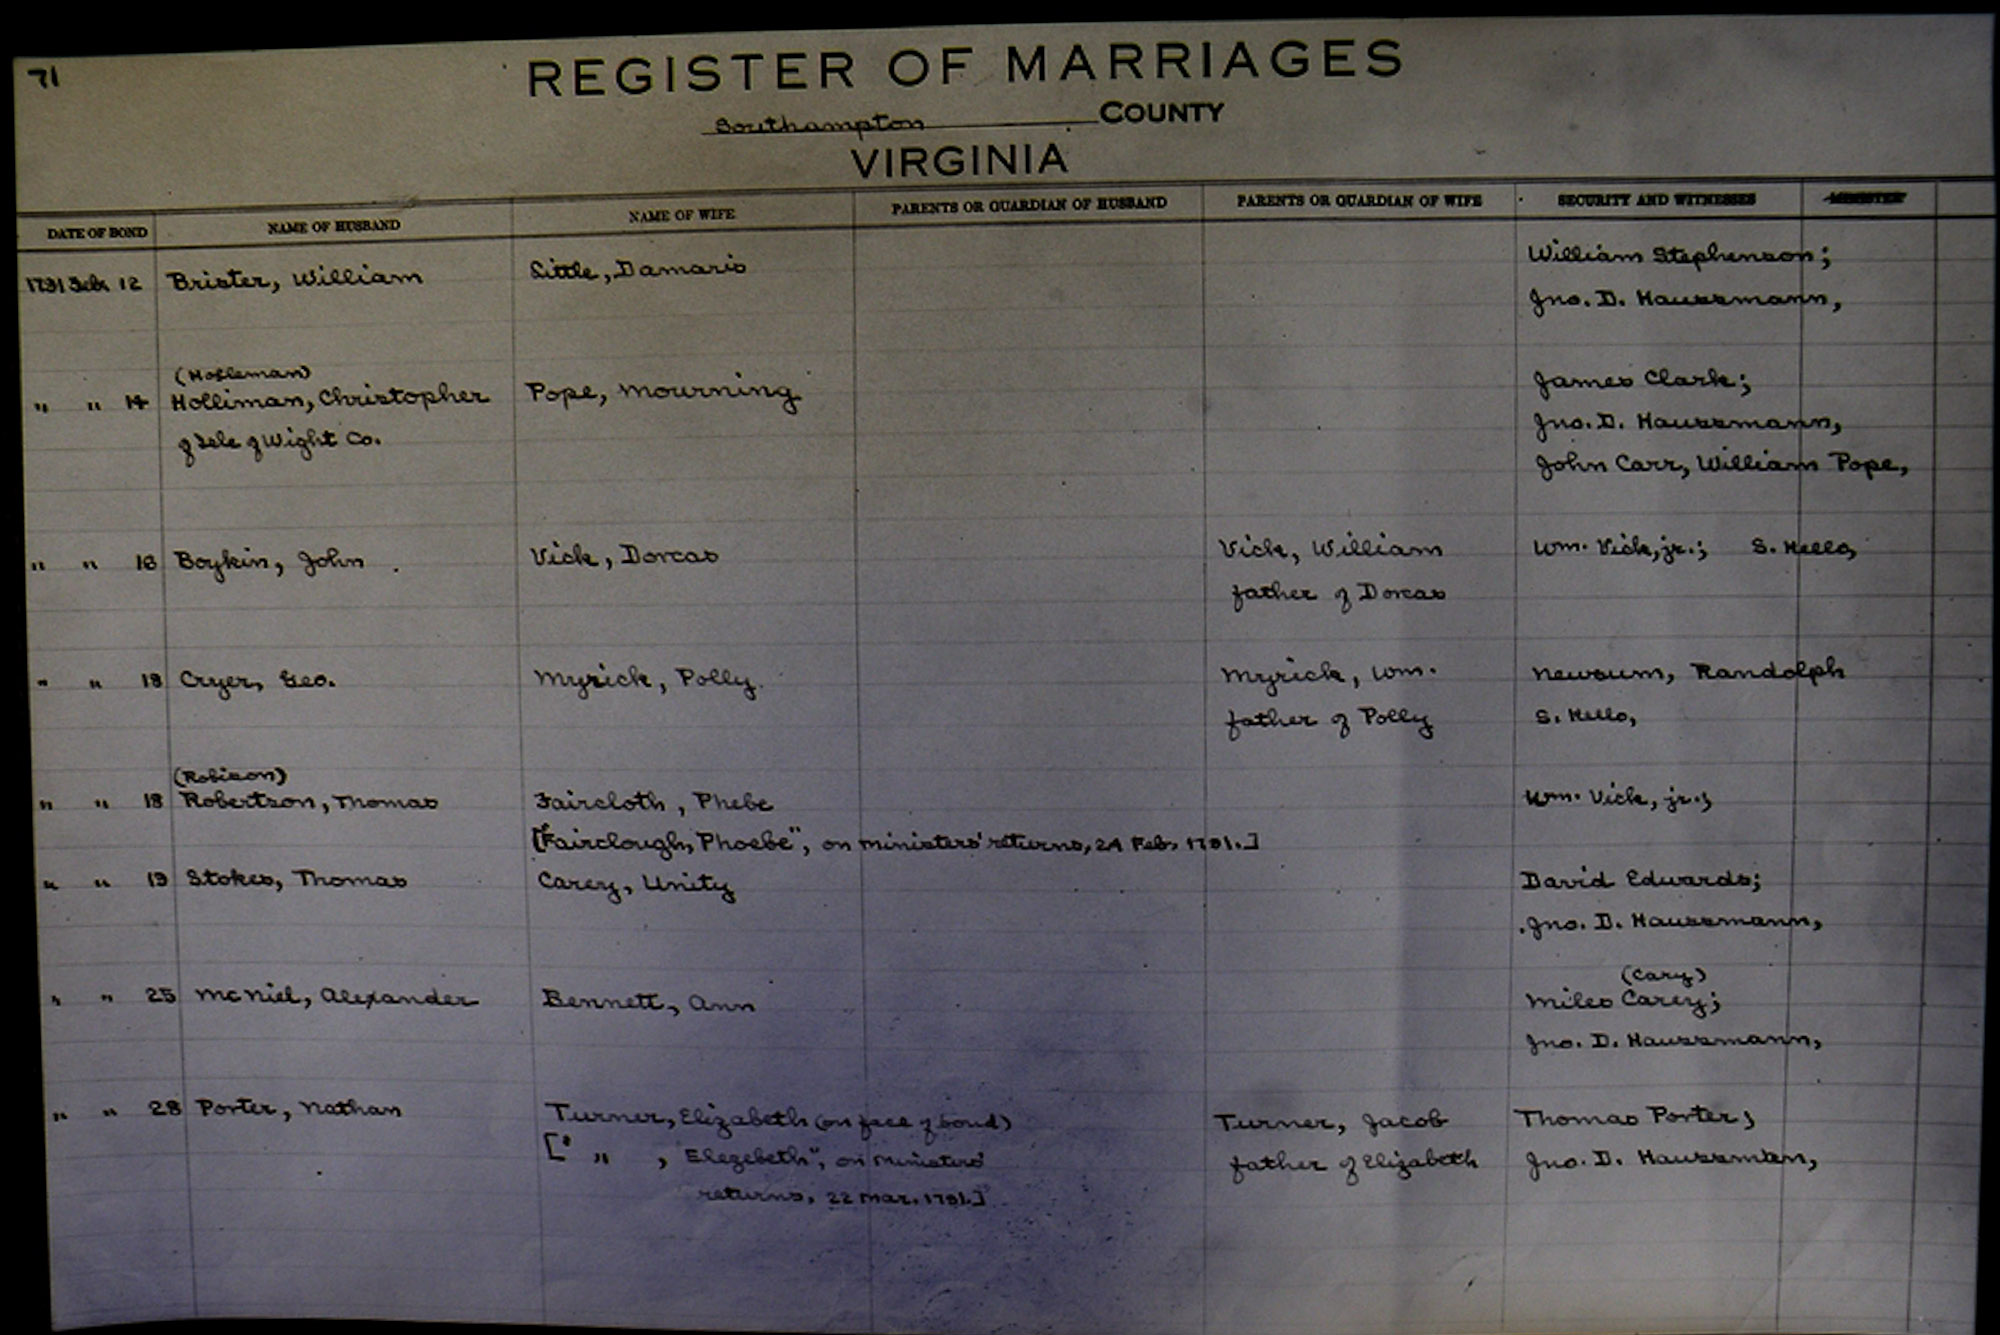 71
REGISTER OF MARRIAGES
Southampton COUNTY
VIRGINIA
DATE OF BOND NAME OF HUSBAND NAME OF WIFE PARENTS OR GUARDIAN OF HUSBAND PARENTS OR GUARDIAN OF WIFE SECURITY AND WITNESSES MINISTER
1791 Feb. 12 Brister, William Little, Damaris William Stephenson;
Jno. D. Haussmann,
(Holleman)
" " 14 Holliman, Christopher Pope, Mourning James Clark;
of Isle of Wight Co. Jno. D. Haussmann,
John Carr, William Pope,
" " 16 Boykin, John Vick, Dorcas Vick, William Wm. Vick, jr.; S. Kello,
father of Dorcas
" " 18 Cryer, Geo. Myrick, Polly Myrick, Wm. Newsum, Randolph
father of Polly S. Kello,
(Robison)
" " 18 Robertson, Thomas Faircloth, Phebe Wm. Vick, jr.;
["Fairclough, Phoebe", on ministers' returns, 24 Feb. 1791.]
" " 19 Stokes, Thomas Carey, Unity David Edwards;
Jno. D. Haussmann,
(Cary)
" " 25 McNiel, Alexander Bennett, Ann Miles Carey;
Jno. D. Haussmann,
" " 28 Porter, Nathan Turner, Elizabeth (on face of bond) Turner, Jacob Thomas Porter;
[" " , Elezebeth", on ministers' father of Elizabeth Jno. D. Haussman,
returns, 22 Mar. 1791.]